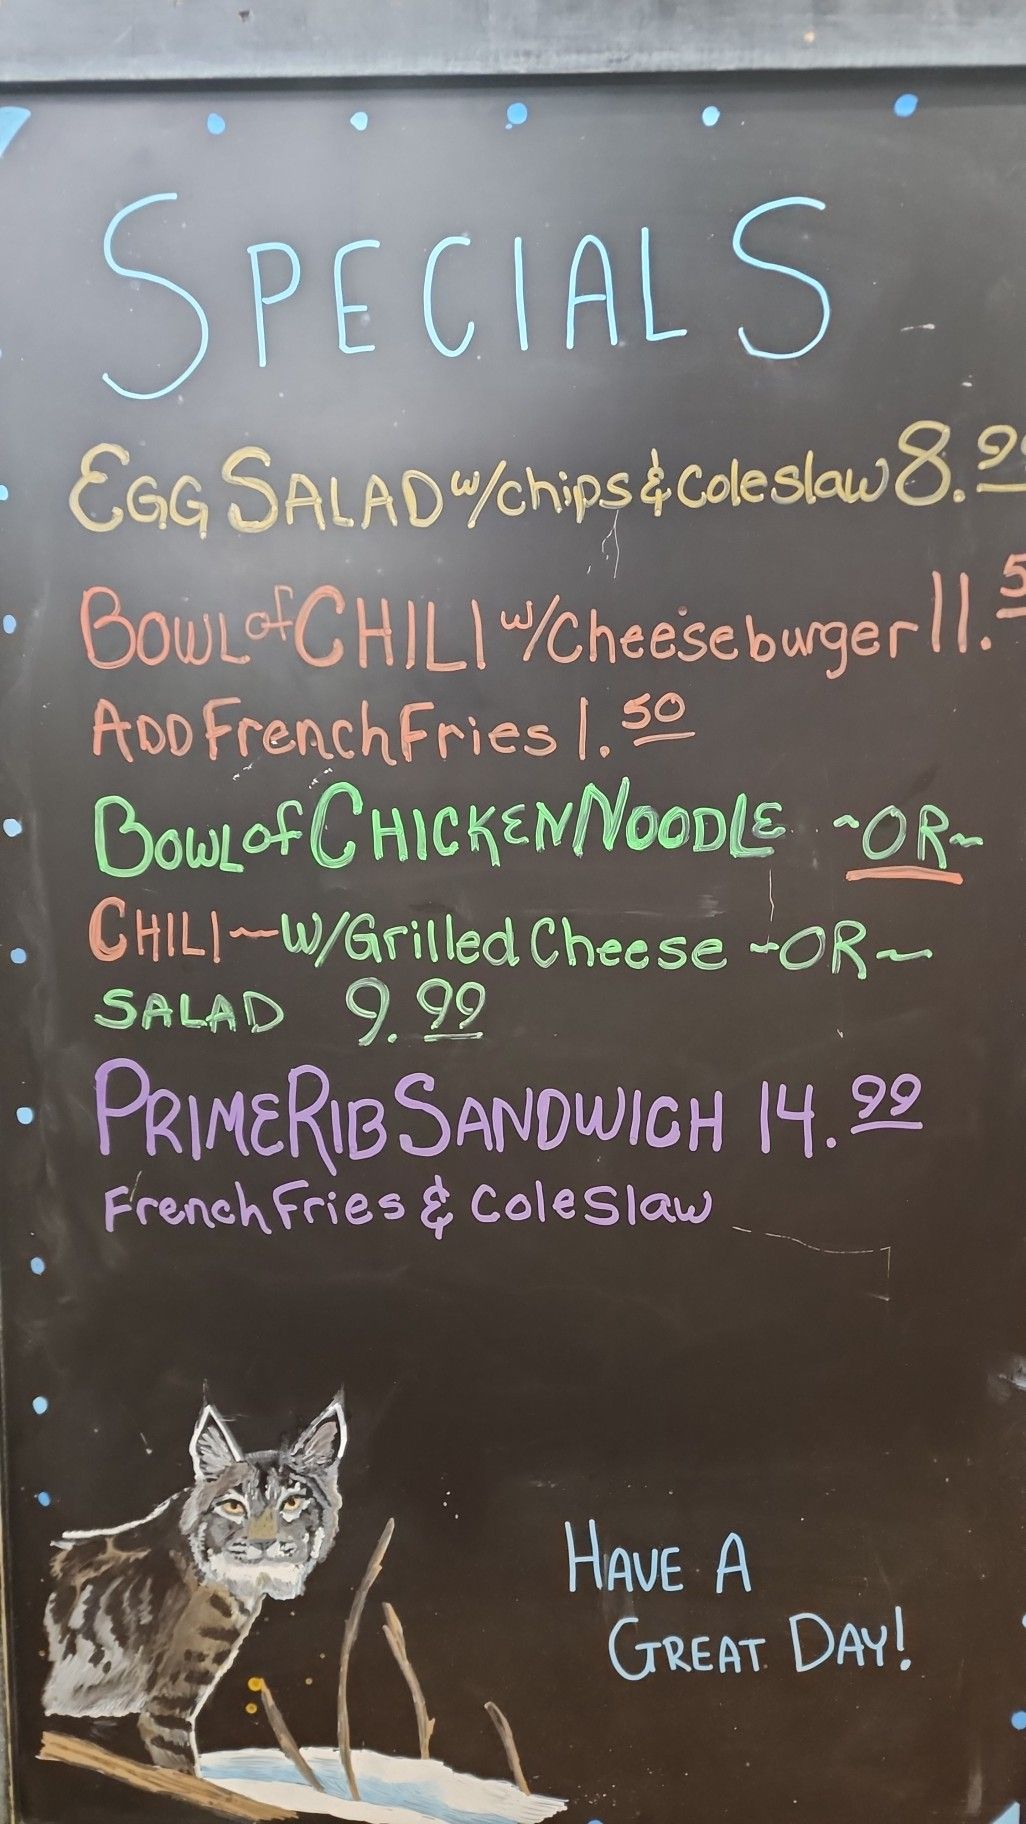 SPECIALS
EGG SALAD w/chips & Coleslaw 8.
BOWL of CHILI w/Cheeseburger 11.
ADD French Fries 1.50
BOWL of CHICKEN NOODLE ~OR~
CHILI ~ W/Grilled Cheese ~OR~
SALAD 9.99
PRIME RIB SANDWICH 14.99
French Fries & Coleslaw
HAVE A
GREAT DAY!